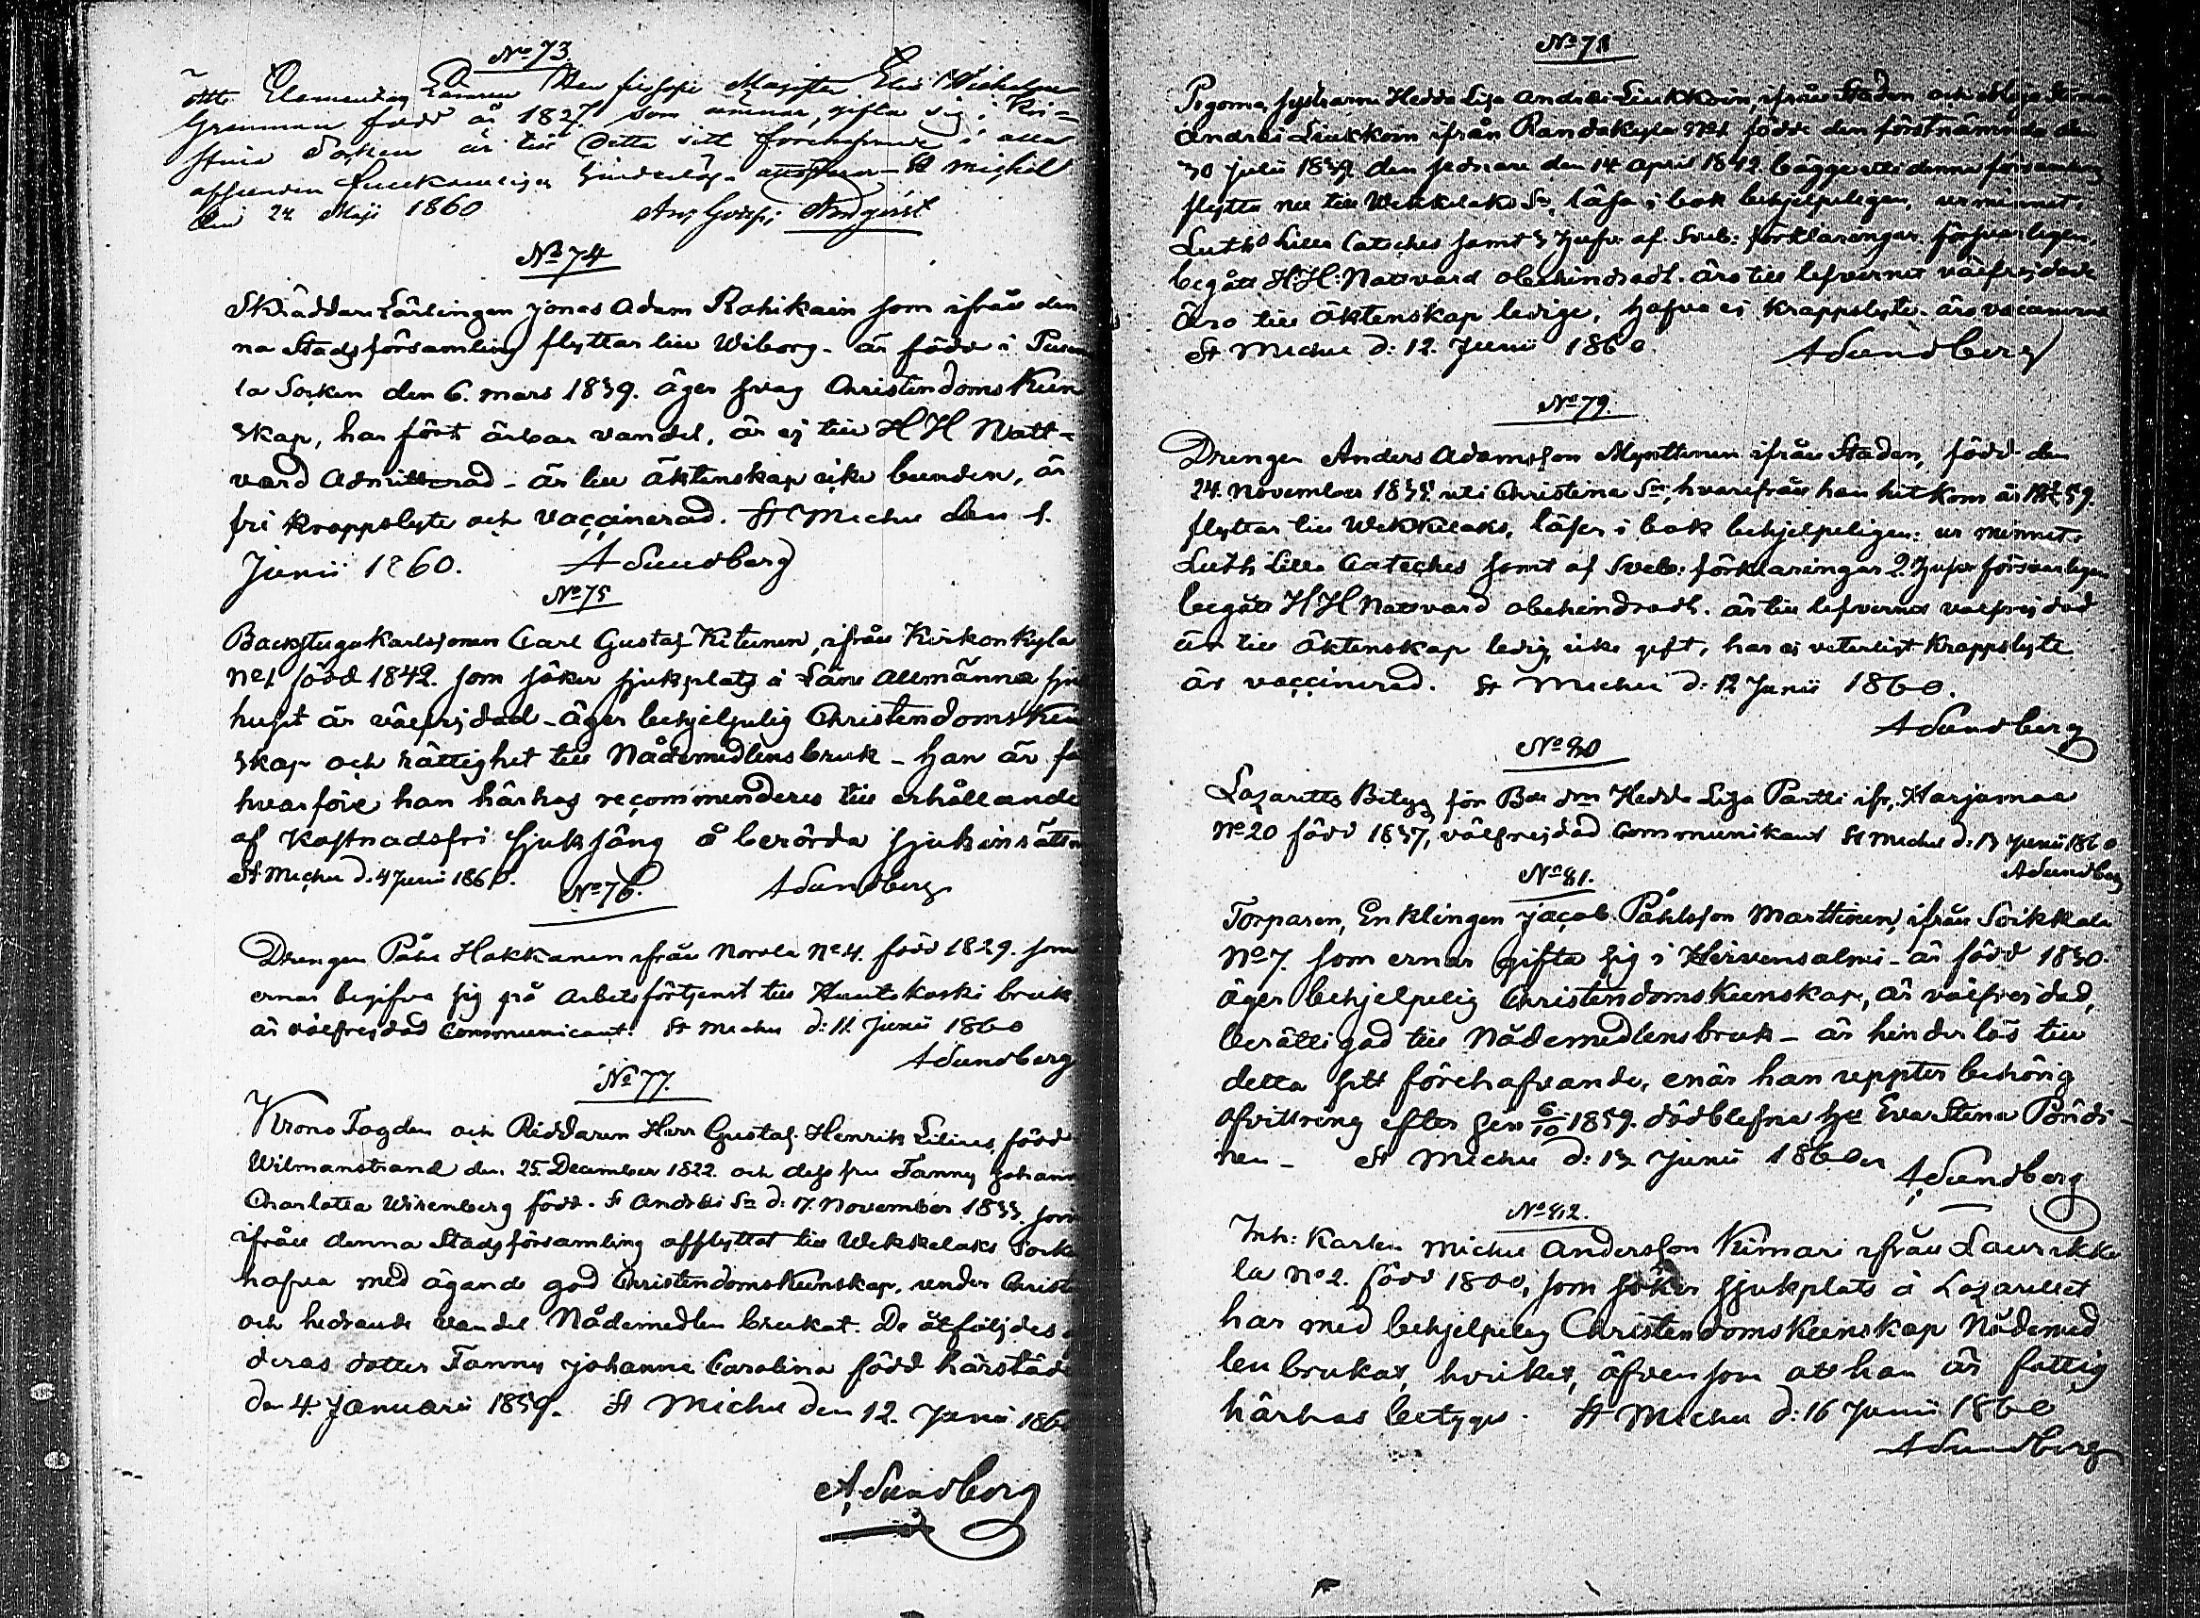 No 73.
att Elementar Läraren Herr filosofie Magister Elis Wilhelm
Grenman född år 1827 som ämnar gifta sig i Kri-
stina Socken är till detta sitt förehafvande i alla
afseenden hinderlös St Michel
den 24 Maji 1860
No 74
Skräddare Lärlingen Jonas Adam Rahikain som ifrån den
na Stadsförsamling flyttar till Wiborg - är född i
la Socken den 6. Mars 1839. äger svag Christendoms Kun
skap, har fört ärbar vandel, är ej till H H Natt-
vard Admitterad - är till äktenskap icke bunden, är
fri kroppslyte och vaccinerad. St Michel den 1.
Junii 1860. A Sundberg
No 75
Backstugukarlssonen Carl Gustaf Kitunen, ifrån Kirkonkyla
No 1 född 1842. som söker sjukplats å Läns Allmänna sju
huset är välfrejdad - äger behjelpelig Christendoms Kun
skap och rättighet till Nådemedlens bruk - han är
hvarföre han härhos recommenderes till erhållande
af Kostnadsfri sjuksäng å berörda sjukinrättn
St Michel d. 4 Junii 1860. A Sundberg
No 76.
Drengen Påhl Hakkanen ifrån Norola No 4. född 1829. som
ernar begifva sig på Arbetsförtjenst till Huutokoski bruk
är välfrejdad Communicant. St Michel d: 11 Junii 1860
A Sundberg
No 77.
Krono Fogden och Riddaren Herr Gustaf Henrik Lilius, född
Wilmanstrand den 25. December 1822. och dess fru Fanny Johann
Charlotta Wirenberg född. St Andreæ Sn d: 17. November 1833. som
ifrån denna Stadsförsamling afflyttat till Wekkelaks Socke
hafva med ägande god Christendoms Kunskap. under Christ
och hedrande vandel Nådemedlen brukat. De åtföljdes
deras dotter Fanny Johanna Carolina född härstäd
den 4. Januarii 1859. St Michel den 12. Junii 1860
A Sundberg
No 78
Pigorna, systrarna Hedda Lisa Andrei Liukkoin, ifrån Staden och
Andrei Liukkoin ifrån Randakyla No 1 födde den förstnämnda den
30 Julii 1839. den sednare den 14 April 1842. bägge uti denna församling
flytta nu till Wekkelaks Sn, läsa i bok behjelpeligen, ur minnet.
Luth. Lilla Cateches samt 3 hufv. af Sveb: förklaringar försvarligen,
begått H H: Nattvard obehindradt. äro till lefvernet välfrejdade
äro till äktenskap ledige, hafva ej kroppslyte. äro vaccinerade
St Michel d: 12. Junii 1860. A Sundberg
No 79.
Drengen Anders Adamsson Mynttinen ifrån Staden, född den
24. November 1835 uti Christina Sn, hvarifrån han hit kom år 1859.
flyttar till Wekkelaks, läser i bok behjelpeligen: ur minnet.
Luth Lilla Cateches samt af Sveb: förklaringar 2. hufv försvarligen
begått H H Nattvard obehindradt. är till lefvernet välfrejdad
är till äktenskap ledig, icke gift, har ej veterligt kroppslyte
är vaccinerad. St Michel d: 12 Junii 1860.
A Sundberg
No 80
Lazaretts Betyg för Bde dn Hedda Lisa Partti ifr. Harjumaa
No 20 född 1837, välfrejdad Communikant St Michel d: 13 Junii 1860
A Sundberg
No 81.
Torparen, Enklingen Jacob Påhlsson Marttinen, ifrån Soikkala
No 7. som ernar gifta sig i Hirvensalmi - är född 1830.
äger behjelpelig Christendoms Kunskap, är välfrejdad,
berättigad till Nådemedlens bruk - är hinderlös till
detta sitt förehafvande, enär han uppter behörig
afvittring efter sin 6/10 1859. dödblefne hu Eva Stina Pöndi-
nen - St Michel d: 13 Junii 1860
A Sundberg
No 82.
Inh: Karlen Michel Andersson Kimari ifrån Laurikka
la No 2. född 1800, som söker sjukplats å Lazarettet
har med behjelpelig Christendoms Kunskap Nådemed
len brukat, hvilket, äfvensom att han är fattig
härhos betygas. St Michel d: 16 Junii 1860
A Sundberg